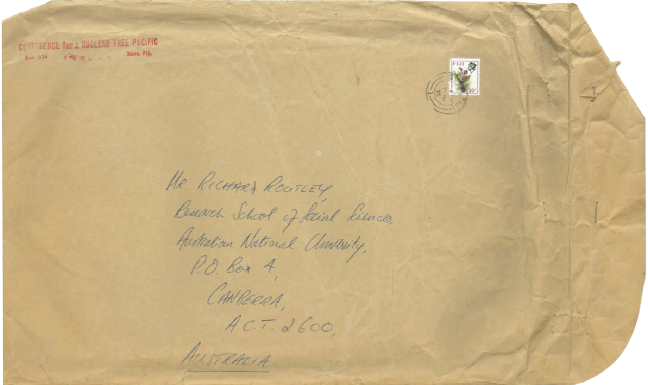 CONFERENCE for a NUCLEAR FREE PACIFIC
Box 534 Suva, Fiji.
FIJI
Mr RICHARD ROUTLEY,
Research School of Social Sciences,
Australian National University,
P.O. Box 4,
CANBERRA,
A.C.T. 2600,
AUSTRALIA